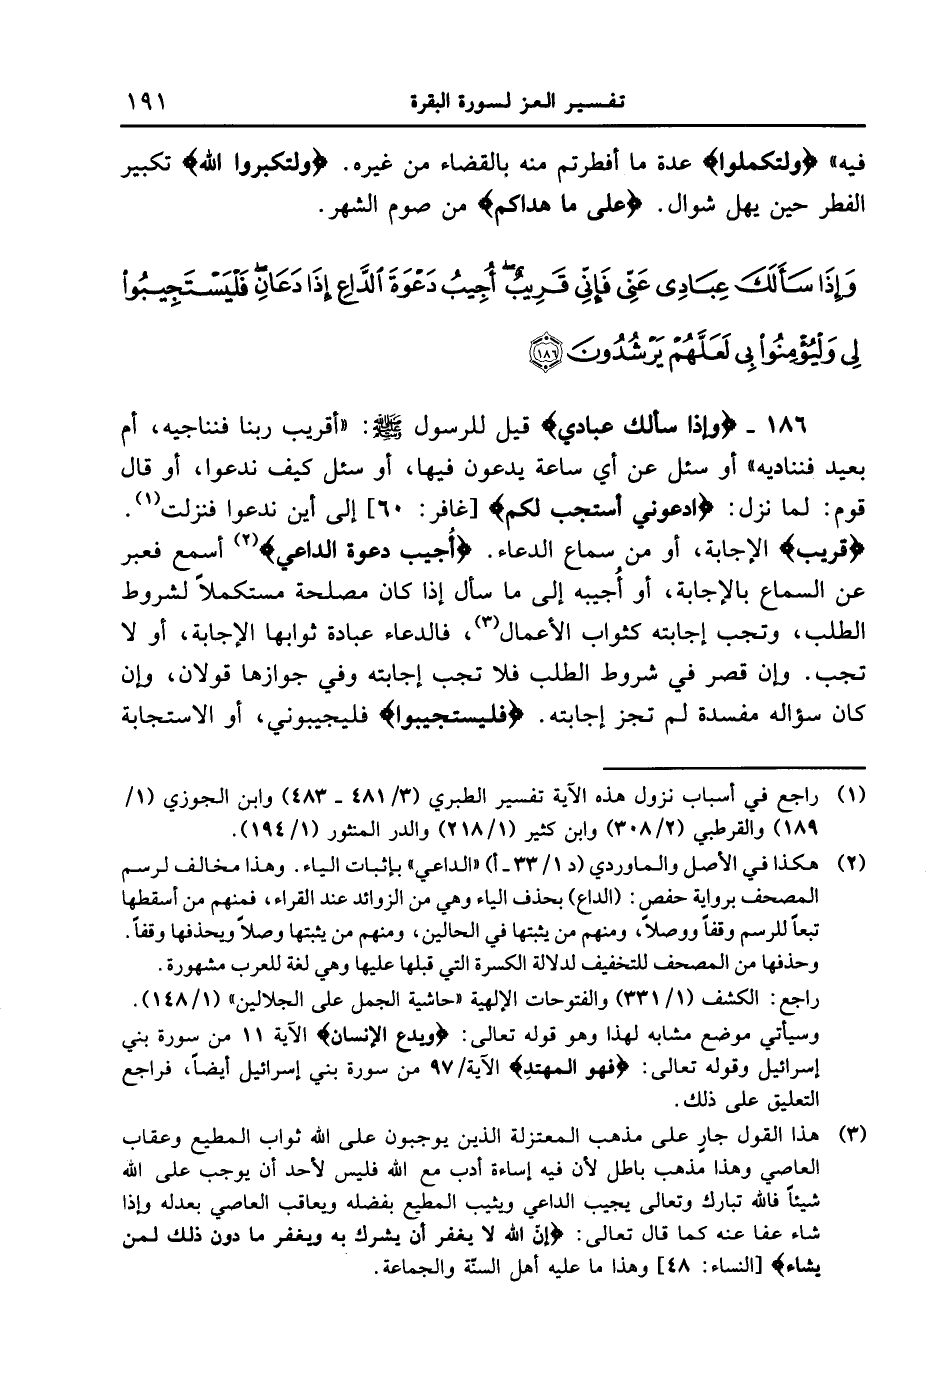 تفسير العز لسورة البقرة ١٩١
فيه» ﴿ولتكملوا﴾ عدة ما أفطرتم منه بالقضاء من غيره. ﴿ولتكبروا الله﴾ تكبير
الفطر حين يهل شوال. ﴿على ما هداكم﴾ من صوم الشهر.
وَإِذَا سَأَلَكَ عِبَادِى عَنِّى فَإِنِّى قَرِيبٌ ۖ أُجِيبُ دَعْوَةَ ٱلدَّاعِ إِذَا دَعَانِ ۖ فَلْيَسْتَجِيبُوا۟
لِى وَلْيُؤْمِنُوا۟ بِى لَعَلَّهُمْ يَرْشُدُونَ ﴿١٨٦﴾
١٨٦ ـ ﴿وإذا سألك عبادي﴾ قيل للرسول ﷺ: «أقريب ربنا فنناجيه، أم
بعيد فنناديه» أو سئل عن أي ساعة يدعون فيها، أو سئل كيف ندعوا، أو قال
قوم: لما نزل: ﴿ادعوني أستجب لكم﴾ [غافر: ٦٠] إلى أين ندعوا فنزلت(١).
﴿قريب﴾ الإجابة، أو من سماع الدعاء. ﴿أُجيب دعوة الداعي﴾(٢) أسمع فعبر
عن السماع بالإجابة، أو أُجيبه إلى ما سأل إذا كان مصلحة مستكملاً لشروط
الطلب، وتجب إجابته كثواب الأعمال(٣)، فالدعاء عبادة ثوابها الإجابة، أو لا
تجب. وإن قصر في شروط الطلب فلا تجب إجابته وفي جوازها قولان، وإن
كان سؤاله مفسدة لم تجز إجابته. ﴿فليستجيبوا﴾ فليجيبوني، أو الاستجابة
(١) راجع في أسباب نزول هذه الآية تفسير الطبري (٣/ ٤٨١ ـ ٤٨٣) وابن الجوزي (١/
١٨٩) والقرطبي (٢/ ٣٠٨) وابن كثير (١/ ٢١٨) والدر المنثور (١/ ١٩٤).
(٢) هكذا في الأصل والماوردي (د ١/ ٣٣ـ أ) «الداعي» بإثبات الياء. وهذا مخالف لرسم
المصحف برواية حفص: (الداع) بحذف الياء وهي من الزوائد عند القراء، فمنهم من أسقطها
تبعاً للرسم وقفاً ووصلاً، ومنهم من يثبتها في الحالين، ومنهم من يثبتها وصلاً ويحذفها وقفاً.
وحذفها من المصحف للتخفيف لدلالة الكسرة التي قبلها عليها وهي لغة للعرب مشهورة.
راجع: الكشف (١/ ٣٣١) والفتوحات الإلهية «حاشية الجمل على الجلالين» (١/ ١٤٨).
وسيأتي موضع مشابه لهذا وهو قوله تعالى: ﴿ويدع الإنسان﴾ الآية ١١ من سورة بني
إسرائيل وقوله تعالى: ﴿فهو المهتدِ﴾ الآية/ ٩٧ من سورة بني إسرائيل أيضاً، فراجع
التعليق على ذلك.
(٣) هذا القول جارٍ على مذهب المعتزلة الذين يوجبون على الله ثواب المطيع وعقاب
العاصي وهذا مذهب باطل لأن فيه إساءة أدب مع الله فليس لأحد أن يوجب على الله
شيئاً فالله تبارك وتعالى يجيب الداعي ويثيب المطيع بفضله ويعاقب العاصي بعدله وإذا
شاء عفا عنه كما قال تعالى: ﴿إنّ الله لا يغفر أن يشرك به ويغفر ما دون ذلك لمن
يشاء﴾ [النساء: ٤٨] وهذا ما عليه أهل السنّة والجماعة.